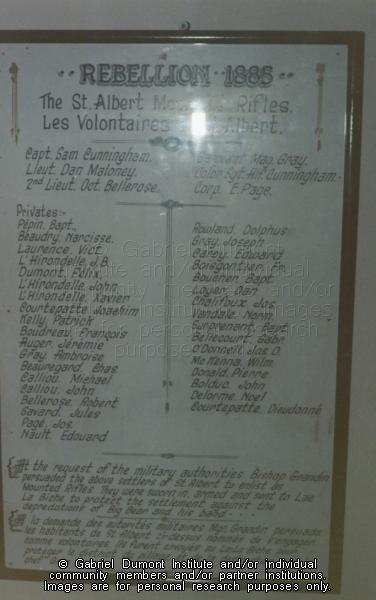 REBELLION 1885
The St. Albert Mounted Rifles.
Les Volontaires St. Albert.
Capt. Sam Cunningham.
Lieut. Dan Maloney.
2nd Lieut. Oct. Bellerose.
Mag. Gray.
Color Sgt. Alf. Cunningham.
Corp. E. Page.
Privates:-
Pépin, Bapt.
Beaudry, Narcisse.
Laurence, Vict.
L'Hirondelle, J.B.
Dumont, Félix,
L'Hirondelle, John
L'Hirondelle, Xavier
Courtepatte, Joachim
Kelly, Patrick
Boudreau, François
Auger, Jérémie
Gray, Ambroise
Beauregard, Chas
Calliou, Michael
Calliou, John
Bellerose, Robert
Savard, Jules
Page, Jos.
Nault, Edouard
Rowland, Dolphus
Gray, Joseph
Carey, Edward
Boisgontier, Fr.
Boucher, Bapt
Loyer, Dan
Chalifoux, Jos.
Vandale, Norm.
Surprenant, Bapt.
Bellecourt, Gabr
O'Donnell, Jas O.
McKenna, Wilm
Donald, Pierre
Bolduc, John
Delorme, Noel
Courtepatte, Dieudonné
At the request of the military authorities Bishop Grandin
persuaded the above settlers of St. Albert to enlist as
Mounted Rifles. They were sworn in, armed and sent to Lac
La Biche to protect the settlement against the
depredations of Big Bear and his band.
A la demande des autorités militaires Mgr. Grandin persuada
les habitants de St. Albert ci-dessus nommés de s'engager
comme volontaires. Ils furent envoyés au Lac la Biche
protéger
chef
© Gabriel Dumont Institute and/or individual
community members and/or partner institutions.
Images are for personal research purposes only.